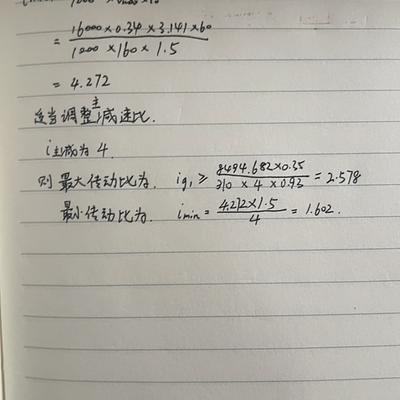 = 16000×0.34×3.141×60 / 1000×160×1.5
= 4.272
适当调整主减速比.
i主减为 4.
则 最大传动比为. ig₁ ≥ 8494.682×0.35 / 310 × 4 × 0.93 = 2.578
最小传动比为. imin = 4.272×1.5 / 4 = 1.602.